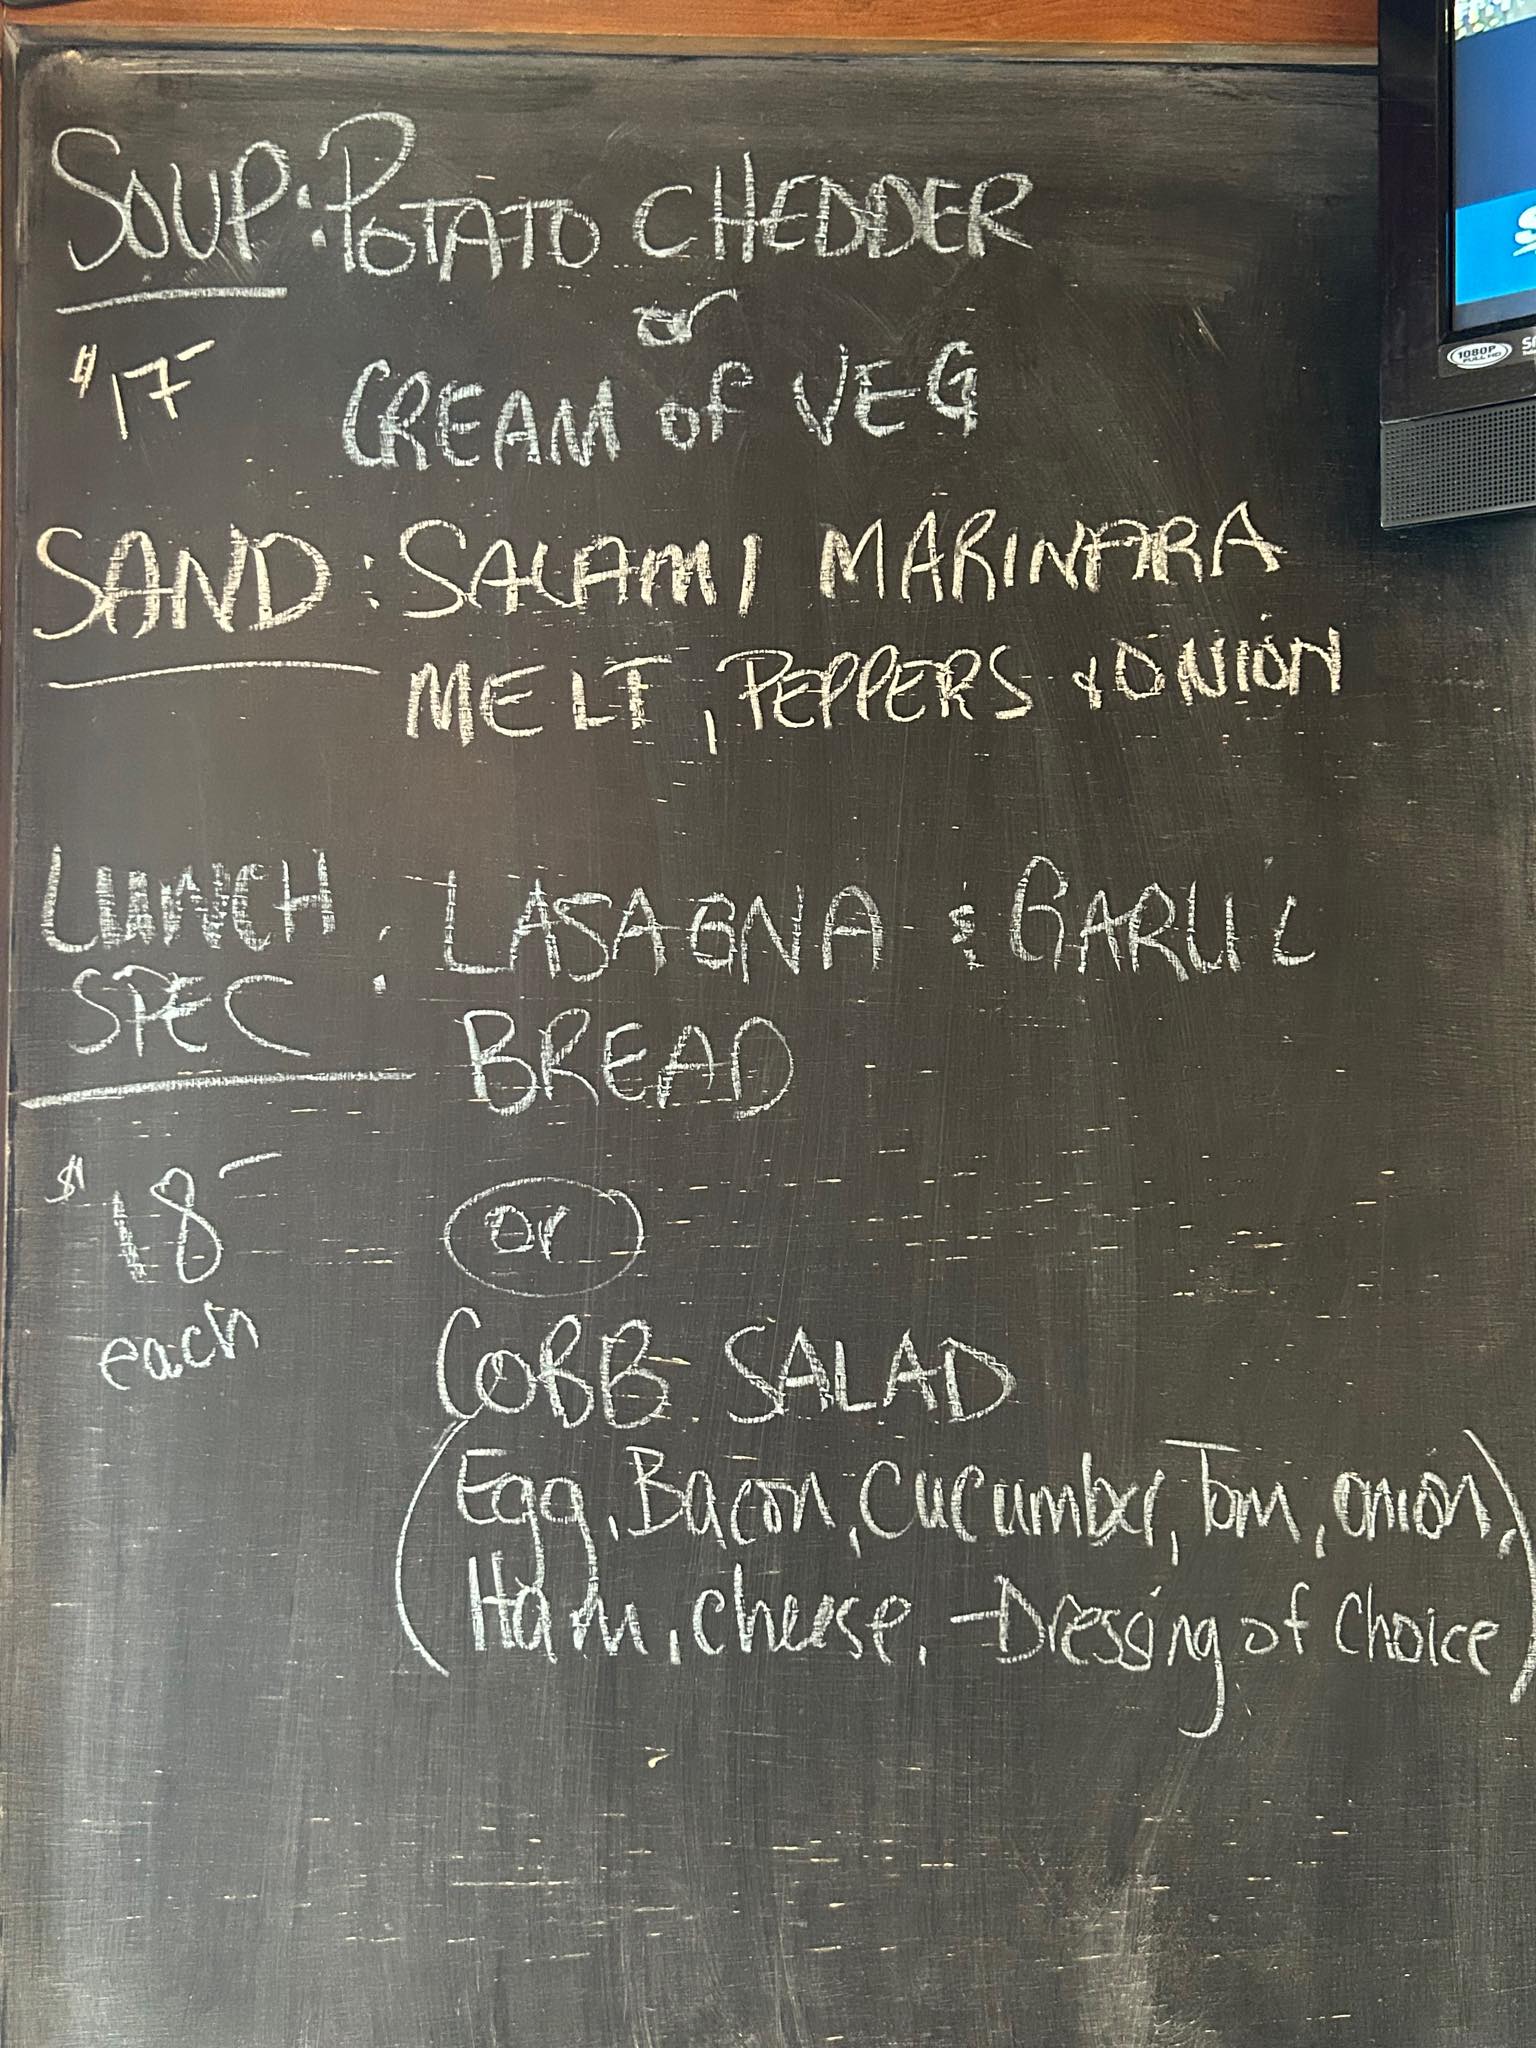 SOUP: POTATO CHEDDER
or
$17-
CREAM of VEG
SAND: SALAMI MARINARA
MELT, PEPPERS & ONION
LUNCH SPEC: LASAGNA & GARLIC
BREAD
$18- each
or
COBB SALAD
(Egg, Bacon, Cucumber, Tom, onion,
Ham, cheese, -Dressing of Choice)
1080P
FULL HD